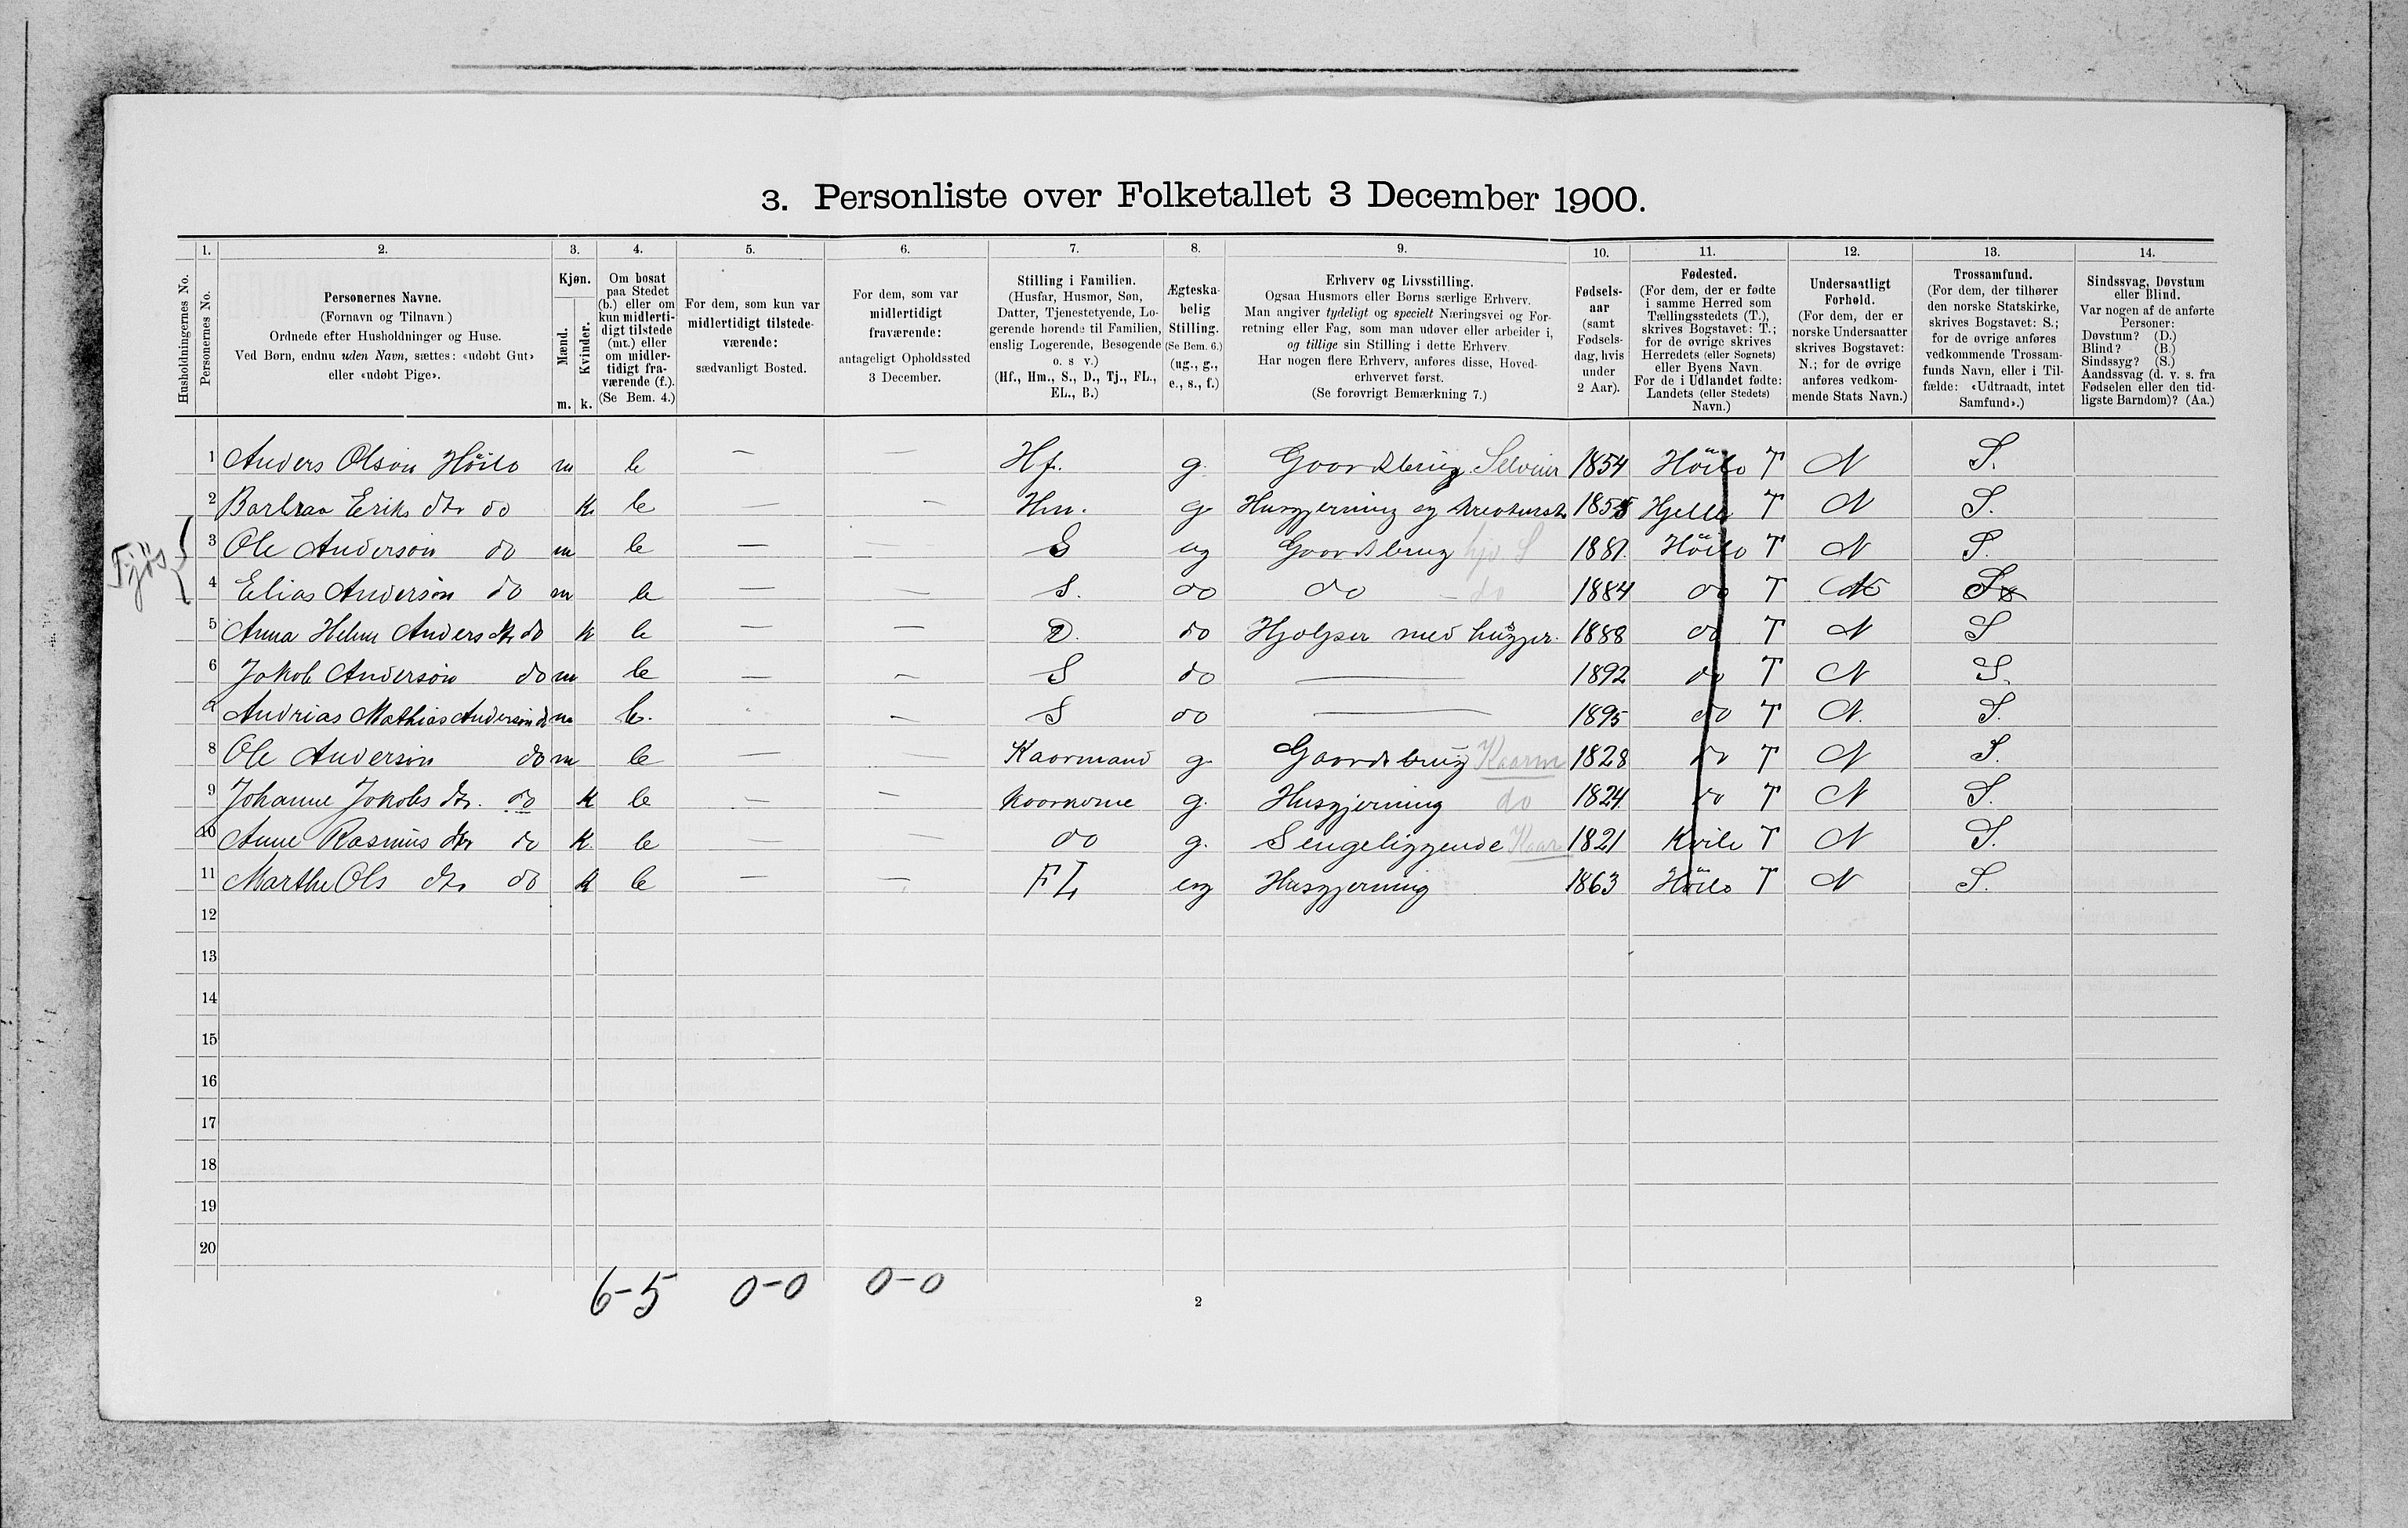 3. Personliste over Folketallet 3 December 1900.
Husholdningernes No.
1.
Personernes No.
2.
Personernes Navne.
(Fornavn og Tilnavn.)
Ordnede efter Husholdninger og Huse.
Ved Børn, endnu uden Navn, sættes: «udøbt Gut»
eller «udøbt Pige».
3.
Kjøn.
Mænd.
Kvinder.
m. k.
4.
Om bosat
paa Stedet
(b.) eller om
kun midlerti-
digt tilstede
(mt.) eller
om midler-
tidigt fra-
værende (f.).
(Se Bem. 4.)
5.
For dem, som kun var
midlertidigt tilstede-
værende:
sædvanligt Bosted.
6.
For dem, som var
midlertidigt
fraværende:
antageligt Opholdssted
3 December.
7.
Stilling i Familien.
(Husfar, Husmor, Søn,
Datter, Tjenestetyende, Lo-
gerende hørende til Familien,
enslig Logerende, Besøgende
o. s v.)
(Hf., Hm., S., D., Tj., FL.,
EL., B.)
8.
Ægteska-
belig
Stilling.
(Se Bem. 6.)
(ug., g.,
e., s., f.)
9.
Erhverv og Livsstilling.
Ogsaa Husmors eller Børns særlige Erhverv.
Man angiver tydeligt og specielt Næringsvei og For-
retning eller Fag, som man udøver eller arbeider i,
og tillige sin Stilling i dette Erhverv.
Har nogen flere Erhverv, anføres disse, Hoved-
erhvervet først.
(Se forøvrigt Bemærkning 7.)
10.
Fødsels-
aar
(samt
Fødsels-
dag, hvis
under
2 Aar).
11.
Fødested.
(For dem, der er fødte
i samme Herred som
Tællingsstedets (T.),
skrives Bogstavet: T.;
for de øvrige skrives
Herredets (eller Sognets)
eller Byens Navn.
For de i Udlandet fødte:
Landets (eller Stedets)
Navn.)
12.
Undersaatligt
Forhold.
(For dem, der er
norske Undersaatter
skrives Bogstavet:
N.; for de øvrige
anføres vedkom-
mende Stats Navn.)
13.
Trossamfund.
(For dem, der tilhører
den norske Statskirke,
skrives Bogstavet: S.;
for de øvrige anføres
vedkommende Trossam-
funds Navn, eller i Til-
fælde: «Udtraadt, intet
Samfund».)
14.
Sindssvag, Døvstum
eller Blind.
Var nogen af de anførte
Personer:
Døvstum? (D.)
Blind? (B.)
Sindssyg? (S.)
Aandssvag (d. v. s. fra
Fødselen eller den tid-
ligste Barndom)? (Aa.)
1 Anders Olson Höilo m b — — Hf. g. Gaardsbrug Selveier 1854 Höilo T N S.
2 Barbraa Eriks dtr do k. b — — Hm. g. Husgjerning og 1855 Hjelle T N S.
3 Ole Anderson do m b — — S ug Gaardsbrug hjo. S 1881. Höilo T N S.
4 Elias Anderson do m b — — S. do do - do 1884 do T N S
5 Anna Helene Anders dtr do k b — — D. do Hjelper med husgjer. 1888 do T N S
6 Jakob Anderson do m b — — S do — 1892 do T N S.
7 Andrias Mathias Anderson do m b. - — S do — 1895 do T N. S.
8 Ole Anderson do m b — — Kaarmand g. Gaardsbrug Kaarm 1828 do T N S.
9 Johanne Jakobs dtr. do k b — — Kaarkone g. Husgjerning do 1824. do T N S.
10 Anne Rasmus dtr do k. b — — do g. Sengeliggende Kaar 1821 Kvile T N S.
11 Marthe Ols dtr do k b — — FL ug Husgjerning 1863 Höilo T N S.
12
13
14
15
16
17
18
19
20
6-5 0-0 0-0
2